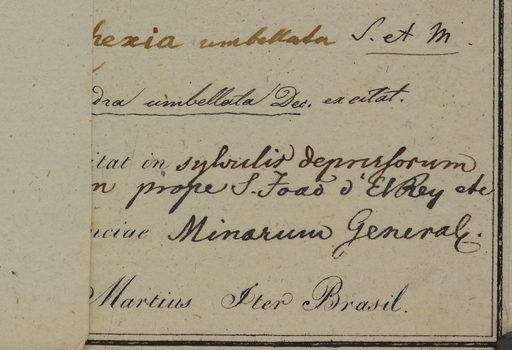 hexia umbellata S. et M.
dra umbellata Dec. excitat.
itat in sylvulis depressorum
n prope S. Joaõ d'El Rey etc
nciae Minarum General.
Martius Iter Brasil.